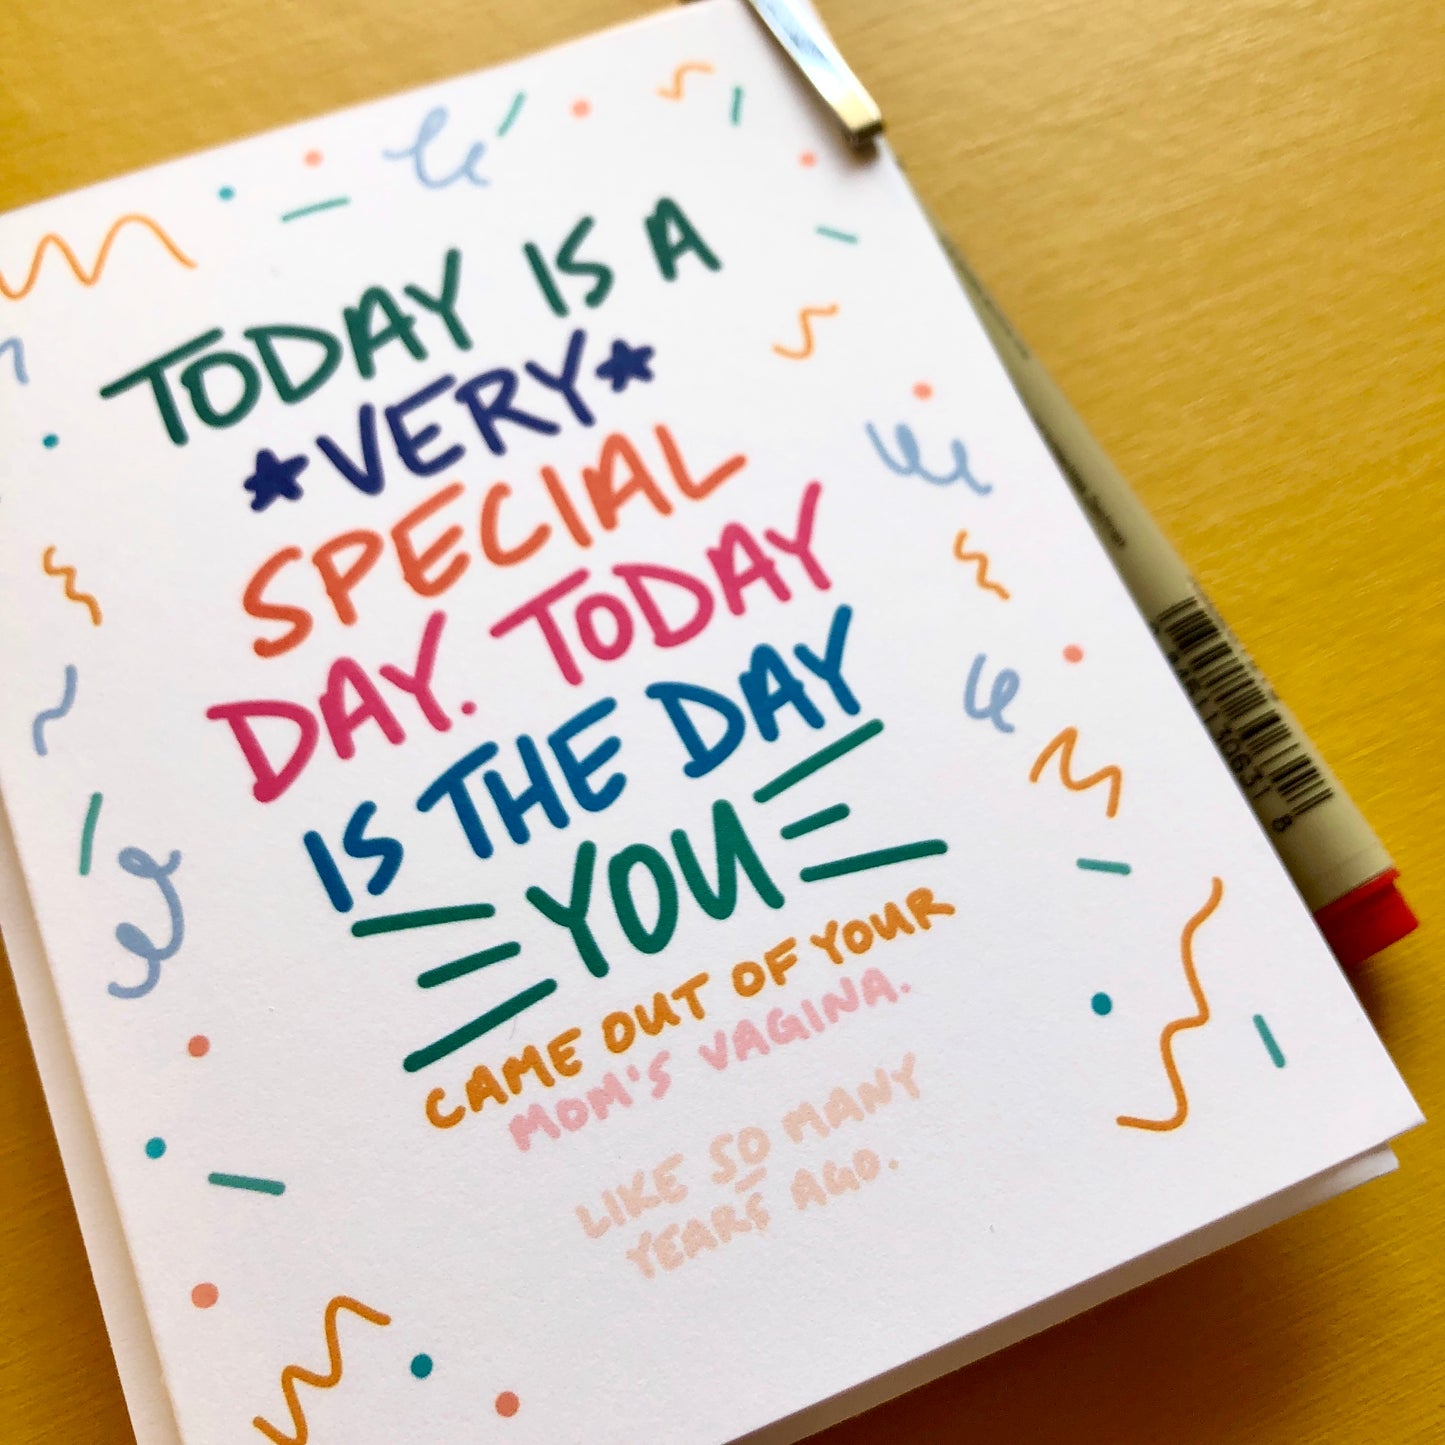 TODAY IS A
*VERY*
SPECIAL
DAY. TODAY
IS THE DAY
YOU
CAME OUT OF YOUR
MOM'S VAGINA.
LIKE SO MANY
YEARS AGO.